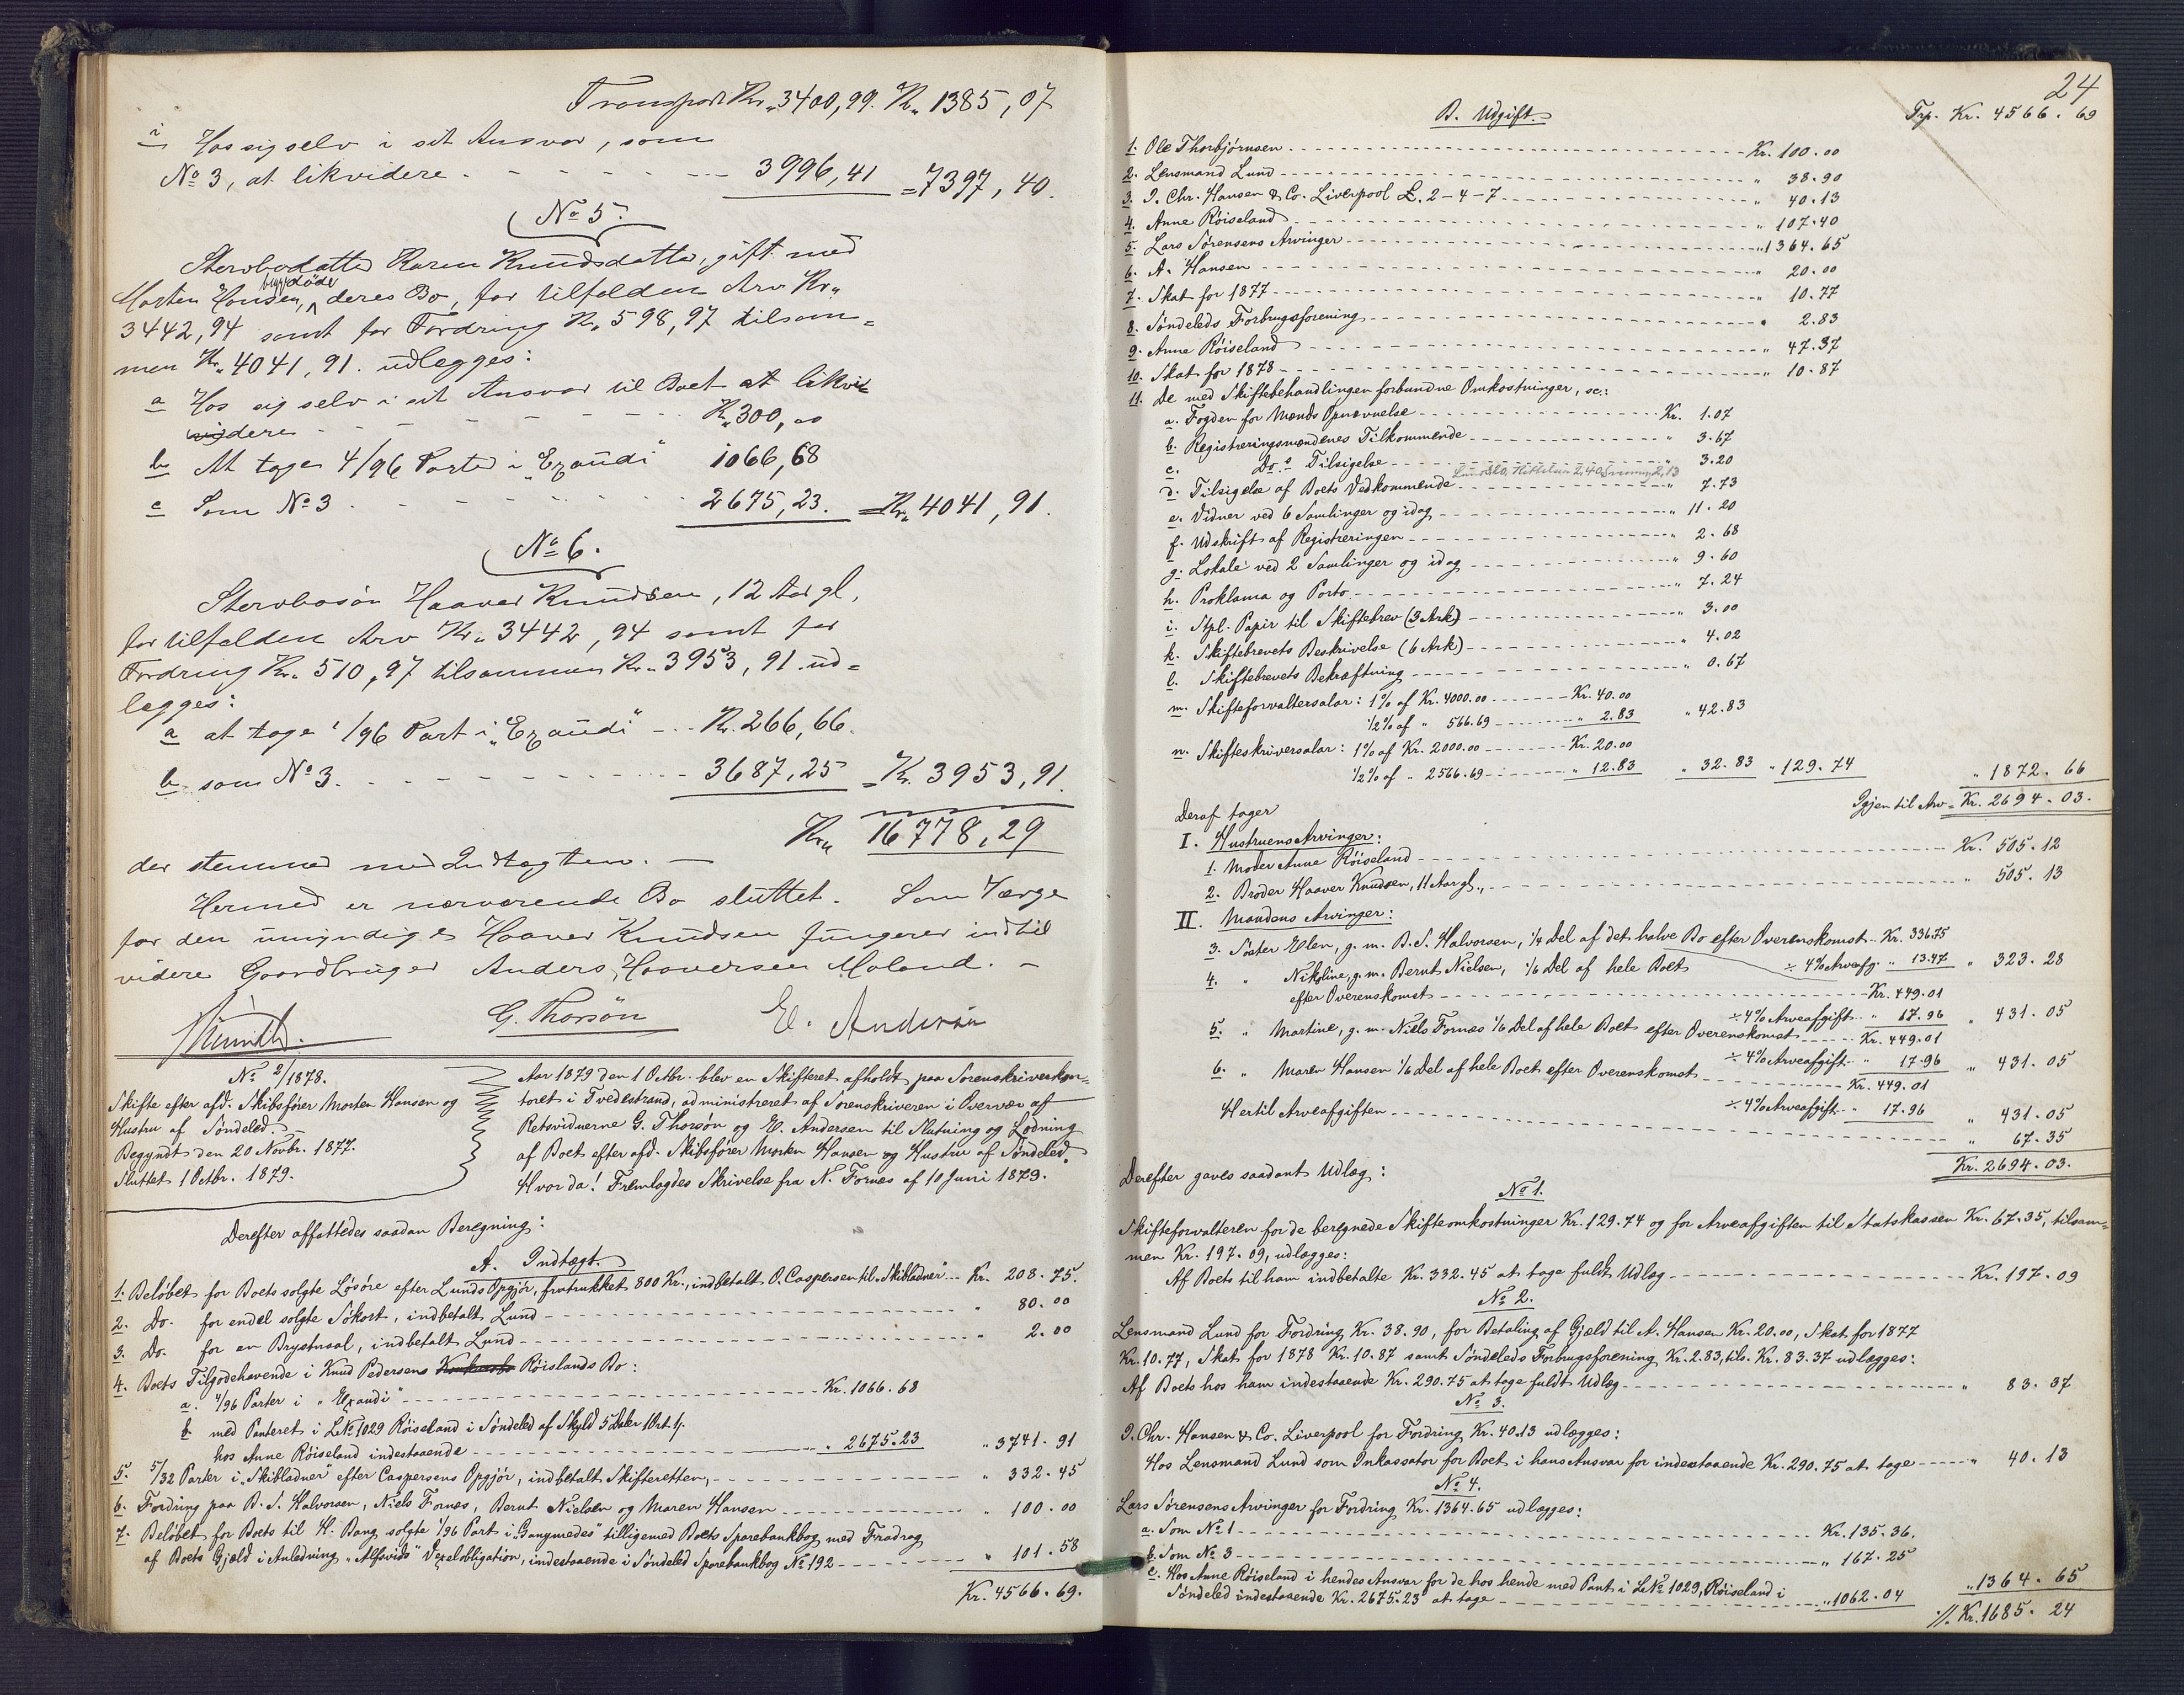 Transport Kr. 3400,99. Kr. 1385,07
i Hos sig selv i sit Ansvar, som
No 3, at likvidere - - - - 3996,41 = 7397,40.
No 5.
Stervbodatter Karen Knudsdatter, gift med
Morten Hansen, begge døde deres Bo, for tilfalden Arv Kr.
3442,94 samt for Fordring Kr. 598,97 tilsam=
men Kr. 4041,91. udlægges:
a Hos sig selv i sit Ansvar til Boet at likvi
dere - - - - Kr. 300,00
b At tage 4/96 Parter i "Exaudi" 1066,68
c Som No 3 - - - - 2675,23. = Kr. 4041,91.
No 6.
Stervbosøn Haaver Knudsen, 12 Aar gl,
for tilfalden Arv Kr. 3442,94 samt for
Fordring Kr. 510,97 tilsammen Kr. 3953,91 ud=
lægges:
a at tage 1/96 Part i "Exaudi" - - Kr. 266,66.
b som No 3. - - - - 3687,25 = Kr. 3953,91.
Kr. 16778,29
der stemmer med Indtægten. —
Hermed er nærværende Bo sluttet. Som Værge
for den umyndige Haaver Knudsen fungerer indtil
videre Gaardbruger Anders Haaversen Moland. —
G. Thorsön E. Andersen
No 2/1878.
Skifte efter afd. Skibsfører Morten Hansen og
Hustru af Søndeled.
Begyndt den 20 Novbr. 1877.
Sluttet 1 Octbr. 1879.
Aar 1879 den 1 Octbr. blev en Skifteret afholdt paa Sorenskriverkon=
toret i Tvedestrand, administreret af Sorenskriveren i Overvær af
Retsvidnerne G. Thorsön og E. Andersen til Slutning og Lodning
af Boet efter afd. Skibsfører Morten Hansen og Hustru af Søndeled.
Hvor da! Fremlagdes Skrivelse fra N. Fornæs af 10 Juni 1879.
Derefter affattedes saadan Beregning:
A. Indtægt.
1. Beløbet for Boets solgte Løsøre efter Lunds Opgjør, fratrukket 800 Kr., indbetalt O. Caspersen til "Skibladner" - - Kr. 208.75.
2. Do. for endel solgte Søkort, indbetalt Lund - - - - " 80.00
3. Do. for en Brystnaal, indbetalt Lund - - - - " 2.00
4. Boets Tilgodehavende i Knud Pedersens Røislands Bo:
a. 4/96 Parter i "Exaudi" - - - - Kr. 1066.68
b. med Panteret i LNo 1029 Røiseland i Søndeled af Skyld 5 Daler 1 Ort 1/.
hos Anne Røiseland indestaaende - - - - " 2675.23 " 3741.91
5. 5/32 Parter i "Skibladner" efter Caspersens Opgjør, indbetalt Skifteretten, - - - - " 332.45
6. Fordring paa B. S. Halvorsen, Niels Fornæs, Bernt Nielsen og Maren Hansen - - - - " 100.00
7. Beløbet for Boets til H. Bang solgte 1/96 Part i "Ganymedes" tilligemed Boets Sparebankbog med Fradrag
af Boets Gjæld i Anledning "Alfsvids" Vexelobligation, indestaaende i Søndeled Sparebankbog No 192 - - - - " 101.58
Kr. 4566.69.
24
B. Udgift. Trp. Kr. 4566.69
1. Ole Thorbjørnsen - - - - Kr. 100.00
2. Lensmand Lund - - - - " 38.90
3. I. Chr. Hansen & Co. Liverpool £. 2-4-7 - - - - " 40.13
4. Anne Røiseland - - - - " 107.40
5. Lars Sørensens Arvinger - - - - " 1364.65
6. A. Hansen - - - - " 20.00
7. Skat for 1877 - - - - " 10.77
8. Søndeleds Forbrugsforening - - - - " 2.83
9. Anne Røiseland - - - - " 47.37
10. Skat for 1878 - - - - " 10.87
11. De med Skiftebehandlingen forbundne Omkostninger, sc.:
a. Fogden for Mænds Opnævnelse - - - - Kr. 1.07
b. Registreringsmændenes Tilkommende - - - - " 3.67
c. Do.s Tilsigelse - - - - " 3.20
d. Tilsigelse af Boets Vedkommende - - - - " 7.73
e. Vidner ved 6 Samlinger og idag - - - - " 11.20
f. Udskrift af Registreringen - - - - " 2.68
g. Lokale ved 2 Samlinger og idag - - - - " 9.60
h. Proklama og Porto - - - - " 7.24
i. Stpl. Papir til Skiftebrev (3 Ark) - - - - " 3.00
k. Skiftebrevets Beskrivelse (6 Ark) - - - - " 4.02
l. Skiftebrevets Bekræftning - - - - " 0.67
m. Skifteforvaltersalar: 1% af Kr. 4000.00 - - - - Kr. 40.00
1/2% af " 566.69 - - - - " 2.83 " 42.83
n. Skifteskriversalar: 1% af Kr. 2000.00 - - - - Kr. 20.00
1/2% af " 2566.69 - - - - " 12.83 " 32.83 " 129.74 " 1872.66
Igjen til Arv = Kr. 2694.03.
Deraf tager
I. Hustruens Arvinger:
1. Moder Anne Røiseland - - - - Kr. 505.12
2. Broder Haaver Knudsen, 11 Aar gl., - - - - " 505.13
II. Mandens Arvinger:
3. Søster Elen, g. m. B. S. Halvorsen, 1/4 Del af det halve Bo efter Overenskomst - Kr. 336.75
÷ 4% Arveafg. " 13.47 " 323.28
4. " Nikoline, g. m. Bernt Nielsen, 1/6 Del af hele Boet
efter Overenskomst - - - - Kr. 449.01
÷ 4% Arveafgift - " 17.96 " 431.05
5. " Martine, g. m. Niels Fornæs 1/6 Del af hele Boet efter Overenskomst - - - - Kr. 449.01
÷ 4% Arveafgift - " 17.96 " 431.05
6. " Maren Hansen 1/6 Del af hele Boet efter Overenskomst - - - - Kr. 449.01
÷ 4% Arveafgift - " 17.96 " 431.05
Hertil Arveafgiften - - - - " 67.35
Kr. 2694.03.
Derefter gaves saadant Udlæg:
No 1.
Skifteforvalteren for de beregnede Skifteomkostninger Kr. 129.74 og for Arveafgiften til Statskassen Kr. 67.35, tilsam=
men Kr. 197.09, udlægges:
Af Boets til ham indbetalte Kr. 332.45 at tage fuldt Udlæg - - - - Kr. 197.09
No 2.
Lensmand Lund for Fordring Kr. 38.90, for Betaling af Gjæld til A. Hansen Kr. 20.00, Skat for 1877
Kr. 10.77, Skat for 1878 Kr. 10.87 samt Søndeleds Forbrugsforening Kr. 2.83, tils. Kr. 83.37 udlægges:
Af Boets hos ham indestaaende Kr. 290.75 at tage fuldt Udlæg - - - - " 83.37
No 3.
I. Chr. Hansen & Co. Liverpool for Fordring Kr. 40.13 udlægges:
Hos Lensmand Lund som Inkassator for Boet i hans Ansvar for indestaaende Kr. 290.75 at tage - - - - " 40.13
No 4.
Lars Sørensens Arvinger for Fordring Kr. 1364.65 udlægges:
a. Som No 1 - - - - Kr. 135.36.
b. Som No 3 - - - - " 167.25
c. Hos Anne Røiseland i hendes Ansvar for de hos hende med Pant i LNo 1029, Røiseland i
Søndeled indestaaende Kr. 2675.23 at tage - - - - " 1062.04 " 1364.65
//. Kr. 1685.24